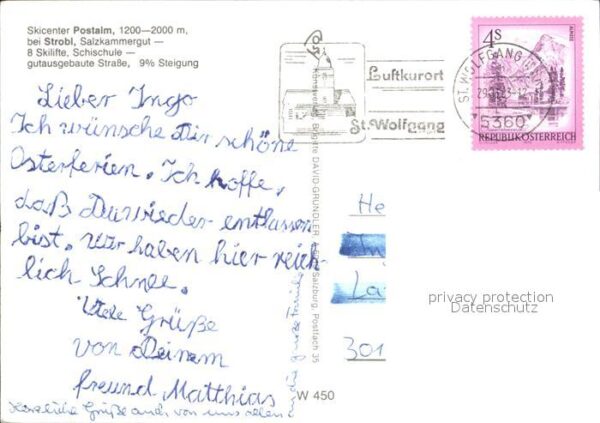 Skicenter Postalm, 1200—2000 m,
bei Strobl, Salzkammergut —
8 Skilifte, Schischule —
gutausgebaute Straße, 9% Steigung
Lieber Ingo
Ich wünsche Dir schöne
Osterferien. Ich hoffe,
daß Du wieder entlassen
bist. Wir haben hier reich-
lich Schnee.
Viele Grüße
von Deinem
freund Matthias
Herzliche Grüße auch von uns allen
an die ganze Familie
DAVID-GRUNDLER
Salzburg, Postfach 35
W 450
Luftkurort
St. Wolfgang
ST. WOLFGANG
5360
4 S
REPUBLIK ÖSTERREICH
He
301
privacy protection
Datenschutz